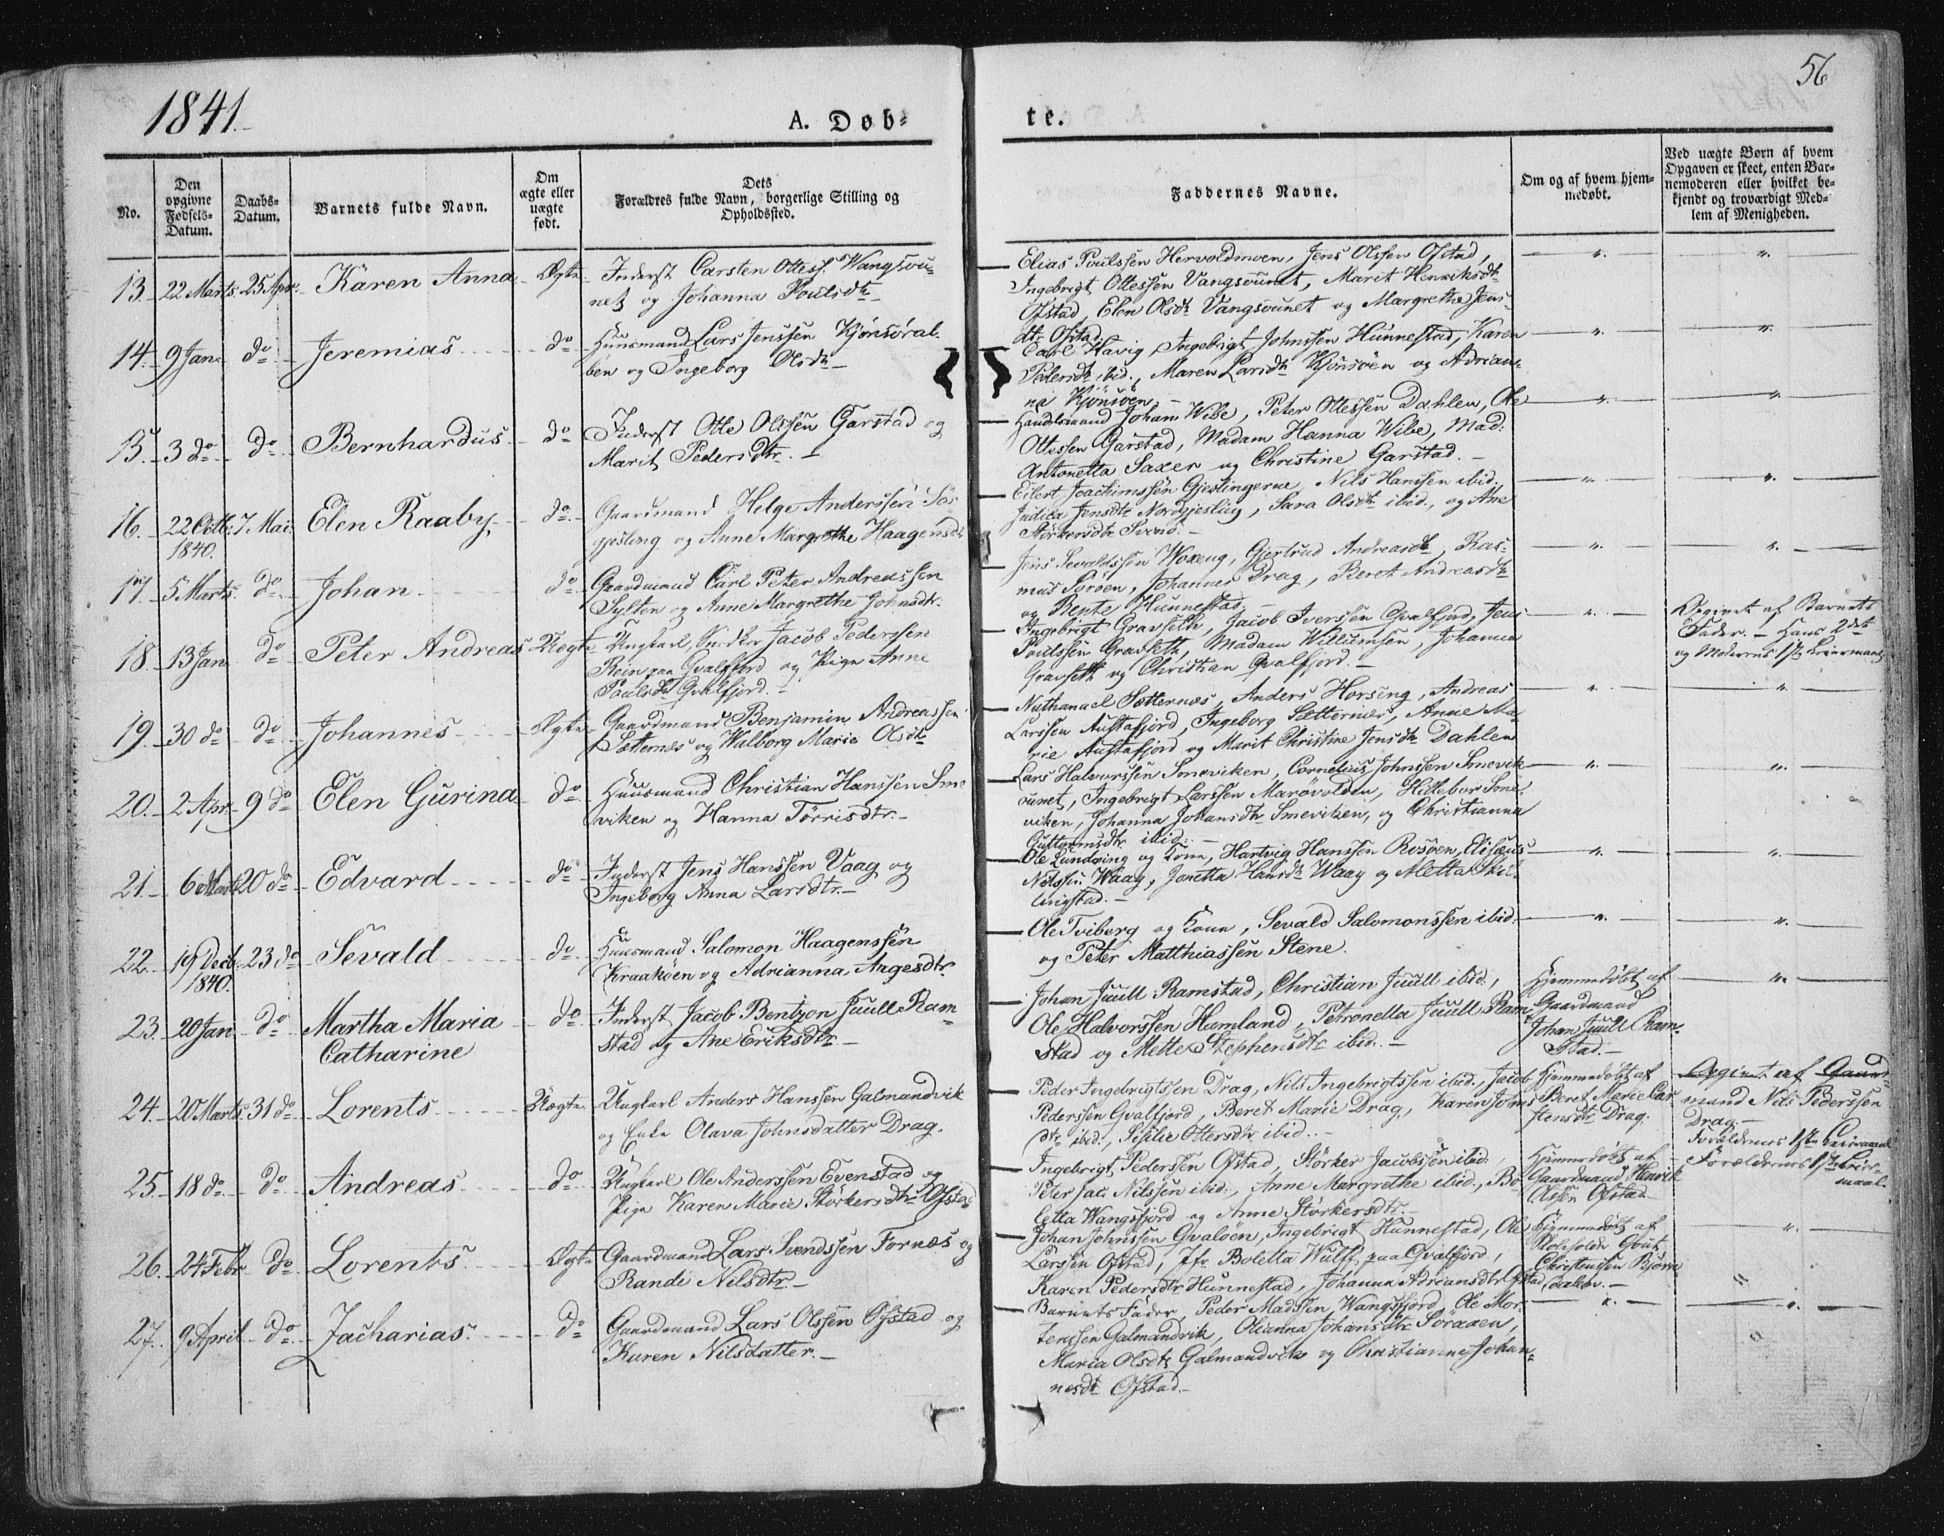 1841.
56
A. Døb-
te.
No.
Den opgivne Fødsels-Datum.
Daabs-Datum.
Barnets fulde Navn.
Om ægte eller uægte født.
Dets Forældres fulde Navn, borgerlige Stilling og Opholdssted.
Faddernes Navne.
Om og af hvem hjem-medøbt.
Ved uægte Børn af hvem Opgaven er skeet, enten Bar-nemoderen eller hvilket be-kjendt og troværdigt Med-lem af Menigheden.
13. 22 Marts 25 Apr. Karen Anna Ægte Inderst Carsten Ottess. Vangsvu-
net og Johanna Poulsdtr.
Elias Poulssen Hervoldmoen, Jens Olssen Ofstad,
Ingebrigt Ottessen Vangsvunet, Marit Henriksdtr
Ofstad, Elen Olsdtr Vangsvunet og Margrethe Jens-
dtr Ofstad.
14. 9 Jan. do Jeremias do Huusmand Lars Jenssen Kjønsøral-
ben og Ingeborg Olsdtr
Carl Havig, Ingebrigt Johnssen Hunnestad, Karen
Pedersdtr ibid., Maren Larsdtr Kjønsøen og Adrian-
na Kjønsøen.
15. 3 do do Bernhardus do Inderst Otte Olssen Garstad og
Marit Pedersdtr.
Handelsmand Johan Wibe, Peter Ottessen Dahlen, Ole
Ottessen Garstad, Madam Hanna Wibe, Mad:
Antonetta Saxen og Christine Garstad.
16. 22 Octbr 1840. 7. Mai Elen Raaby do Gaardmand Helge Anderssen Sør-
gjesling og Anne Margrethe Haagensdtr
Eilert Joachimssen Gjeslingerne, Nils Hanssen ibid.,
Judita Jensdtr Nordgjesling, Sara Olsdtr ibid., og Ane
Størkersdtr
17. 5 Marts do Johan do Gaardmand Carl Peter Andreassen
Sylten og Anne Margrethe Johnsdtr.
Jens Sevaldssen Woxeng, Gjertrud Andreasdtr, Ras-
mus Sørøen, Johannes Drag, Beret Andreasdtr
og Bente Hunnestad.
18. 13 Jan do Peter Andreas Uægte Ungkarl Jacob Pederssen
paa Qvalfjord og Pige Anne
Poulsdtr Qvalfjord.
Ingebrigt Gravseth, Jacob Iverssen Qvalfjord, Jens
Poulssen Gravseth, Madam Willumsen, Johanna
Gravseth og Christian Qvalfjord.
Opgivet af Barnets
Fader. Hans 2det
og Moderens 1ste Leiermaal
19. 30 do do Johannes Ægte Gaardmand Benjamin Andreassen
Sætternes og Walborg Marie Olsdtr
Nathanael Sætternes, Anders Horsing, Andreas
Larssen Austafjord, Ingeborg Sætternes, Anne Ma-
rie Austafjord og Marit Christine Jensdtr Dahlen
20. 2 Apr. 9 do Elen Gurina do Huusmand Christian Hanssen Sme-
viken og Hanna Tørrisdtr.
Lars Halvorssen Smeviken, Cornelius Johnssen Smevik-
vunet, Ingebrigt Larssen Marøvolden, Hillebor Sme-
viken, Johanna Johansdtr Smeviken, og Christianna
Guttormsdtr ibid.
21. 6 Marts 20 do Edvard do Inderst Jens Hanssen Vaag og
Ingeborg Anna Larsdtr.
Ole Lundring og Kone, Hartvig Hanssen Rosøen, Elisæus
Nilssen Waag, Jonetta Hansdtr Waag og Aletta Skil-
lingstad.
22. 19 Decb. 1840. 23 do Sevald do Huusmand Salomon Haagenssen
Kraakøen og Adrianna Aagesdtr
Ole Tviberg og Kone, Sevald Salomonssen ibid.
og Peter Matthiassen Stene.
23. 20 Jan do Martha Maria
Catharine do Inderst Jacob Bentzon Juull Ram-
stad og Ane Eriksdtr
Johan Juull Ramstad, Christian Juull ibid.,
Ole Halvorssen Hamland, Petronella Juull Ram-
stad og Mette Stephensdtr ibid.
Hjemmedøbt af
Gaardmand
Johan Juull Ram-
stad.
24. 20 Marts 31 do Lorents Uægte Ungkarl Anders Hanssen Galmandvik
og Enke Olava Johnsdatter Drag.
Peder Ingebrigtssen Drag, Nils Ingebrigtssen ibid., Jacob
Pederssen Qvalfjord, Beret Marie Drag, Karen Johns-
dtr ibid., Sisilie Ottersdtr ibid.
Hjemmedøbt af
Beret Marie Car-
stensdtr Drag.
Opgivet af Gaard-
mand Nils Pederssen
Drag.
Forældrenes 1ste Leiermaal
25. 18 do do Andreas do Ungkarl Ole Anderssen Evenstad og
Pige Karen Marie Størkersdtr Ofstad
Ingebrigt Pederssen Ofstad, Størker Jacobssen ibid.,
Peter Jac: Nilssen ibid., Anne Margrethe ibid., Bo-
letta Wangsfjord og Anne Størkersdtr.
Hjemmedøbt af
Gaardmand Henrik
Olsen Ofstad
Forældrenes 1ste Leier-
maal.
26. 24 Febr do Lorents Ægte Gaardmand Lars Svendssen Fornæs og
Randi Nilsdtr.
Johan Johnssen Qvaløen, Ingebrigt Hunnestad, Ole
Larssen Ofstad, Jfr. Boletta Wulff paa Qvalfjord,
Karen Pedersdtr Hunnestad, Johanna Adriansdtr Ofstad
Hjemmedøbt af
Christenssen Bjørn-
dalen.
27. 9 April do Zacharias do Gaardmand Lars Olssen Ofstad og
Karen Nilsdatter.
Barnets Fader, Peder Madssen Wangsfjord, Ole Mor-
tenssen Galmandvik, Olianna Johansdtr Sørøen,
Maria Olsdtr Galmandvik og Christianne Johan-
nesdtr Ofstad.